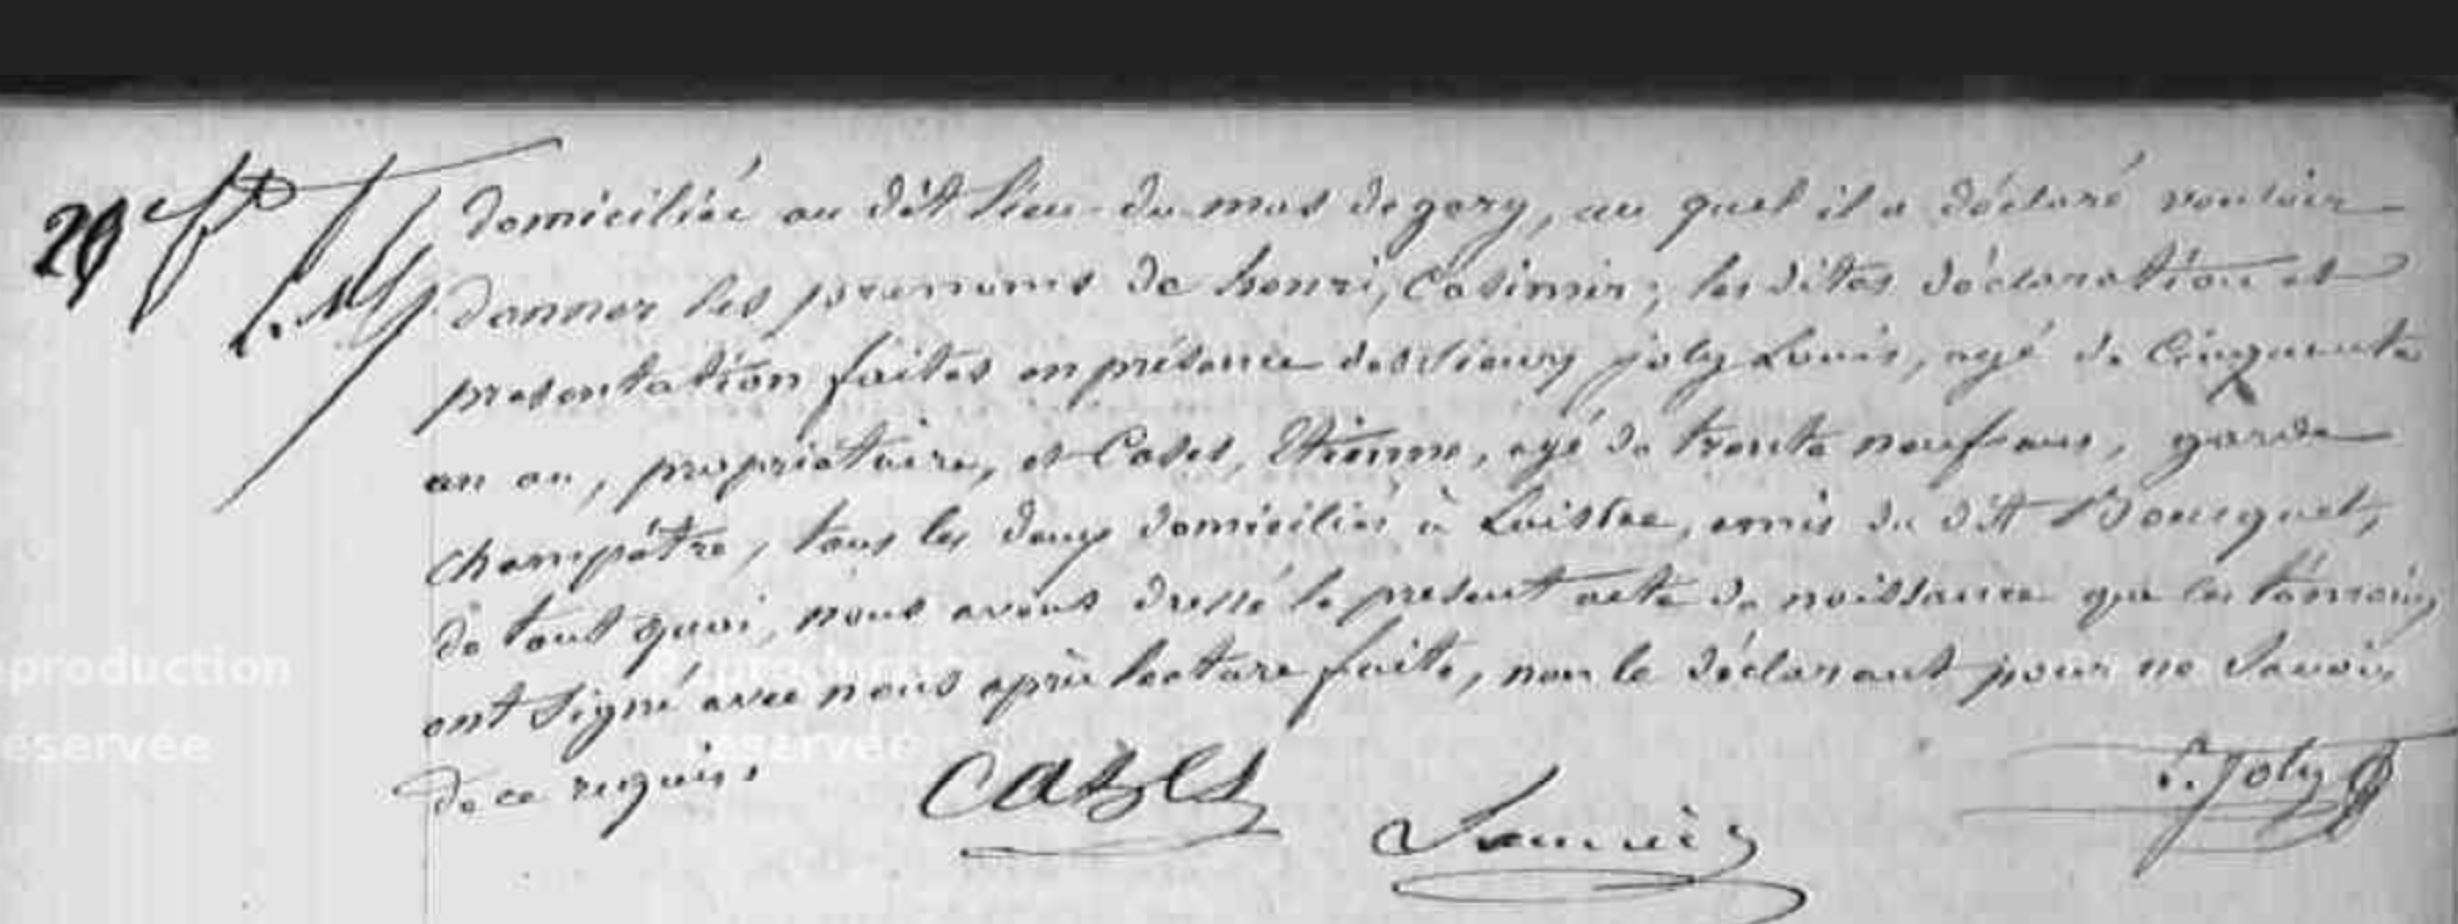 29e fto
domiciliée au dit lieu du mas de gery, au quel il a déclaré vouloir
donner les prenoms de henri, Casimir; les dites déclaration et
presentation faites en présence des sieurs joly Louis, agé de Cinquante
un an, propriétaire, et Cases, Etienne, agé de trente neuf ans, garde
champêtre, tous les deux domiciliés à Laissac, amis du dit Bousquet,
de tout quoi, nous avons dressé le présent acte de naissance que les témoins
ont signé avec nous après lecture faite, non le déclarant pour ne savoir,
de ce requis.
CAZES
L. Joly
eproduction
éservée
Reproduction
réservée